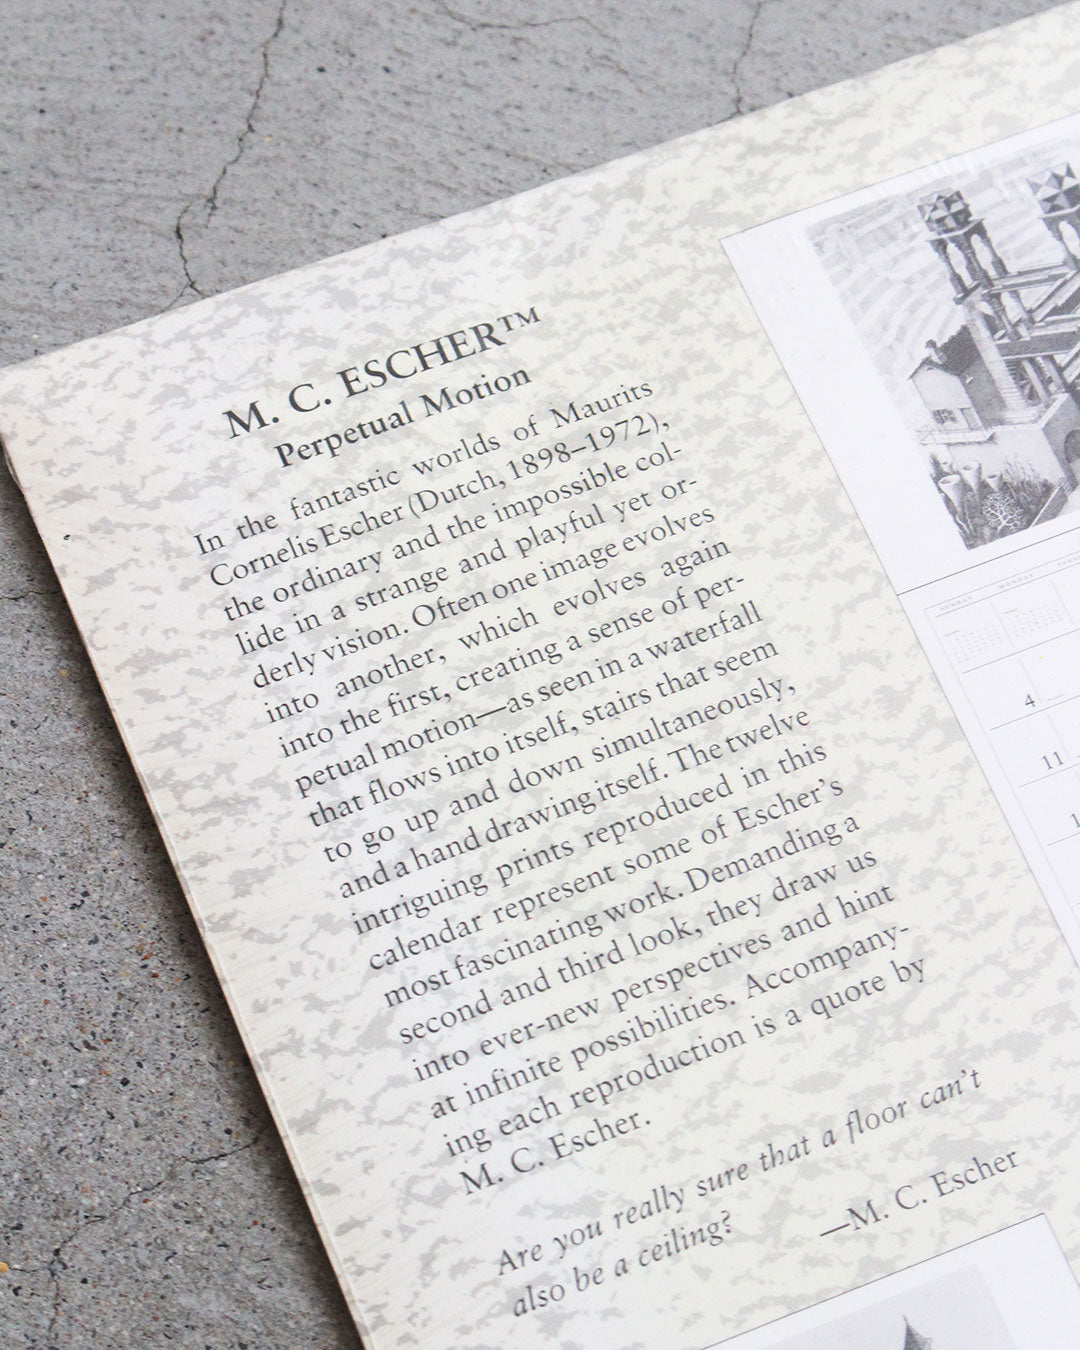 M. C. ESCHER™
Perpetual Motion
In the fantastic worlds of Maurits
Cornelis Escher (Dutch, 1898–1972),
the ordinary and the impossible col-
lide in a strange and playful yet or-
derly vision. Often one image evolves
into another, which evolves again
into the first, creating a sense of per-
petual motion—as seen in a waterfall
that flows into itself, stairs that seem
to go up and down simultaneously,
and a hand drawing itself. The twelve
intriguing prints reproduced in this
calendar represent some of Escher's
most fascinating work. Demanding a
second and third look, they draw us
into ever-new perspectives and hint
at infinite possibilities. Accompany-
ing each reproduction is a quote by
M. C. Escher.
Are you really sure that a floor can't
also be a ceiling?
—M. C. Escher
SUNDAY MONDAY
4
11